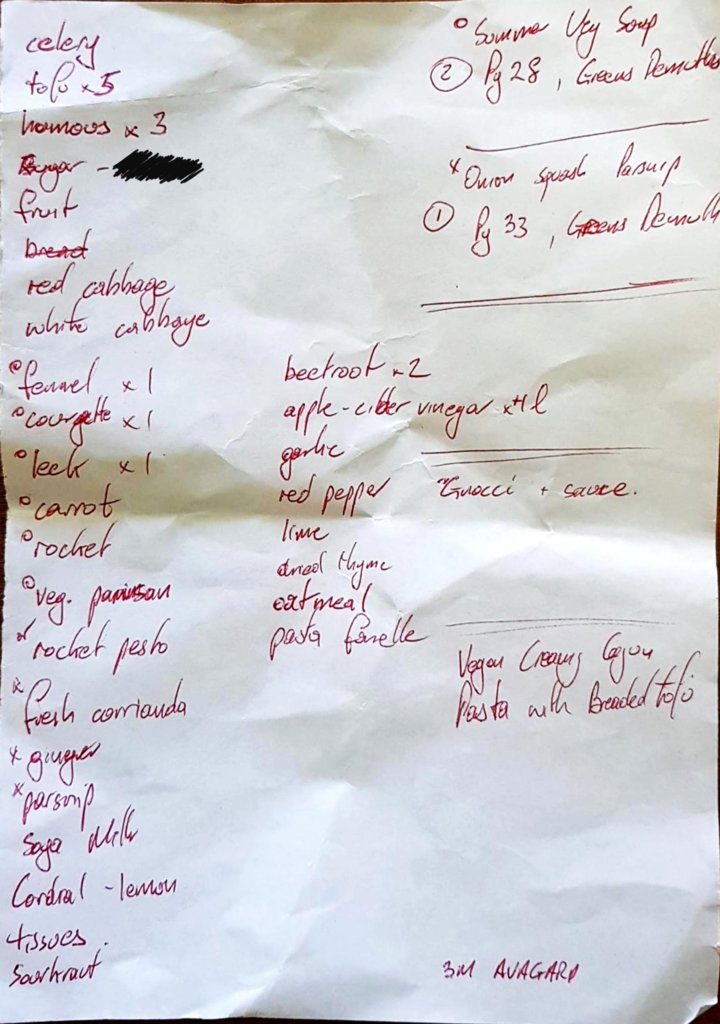 celery
tofu x 5
homous x 3
Sugar -
fruit
bread
red cabbage
white cabbage
fennel x 1
courgette x 1
leek x 1
carrot
rocket
veg. parmesan
rocket pesto
fresh corrianda
x ginger
x parsnip
Soya Milk
Cordial - lemon
tissues.
Sourkraut
beetroot x 2
apple-cider vinegar x 1 l
garlic
red pepper
lime
dried thyme
oatmeal
pasta farelle
Summer Veg Soup
② Pg 28, Greens
x Onion squash Parsnip
① Pg 33, Greens
Gnocci + sauce.
Vegan Creamy Cajun
Pasta with Breaded tofu
3M AVAGARD